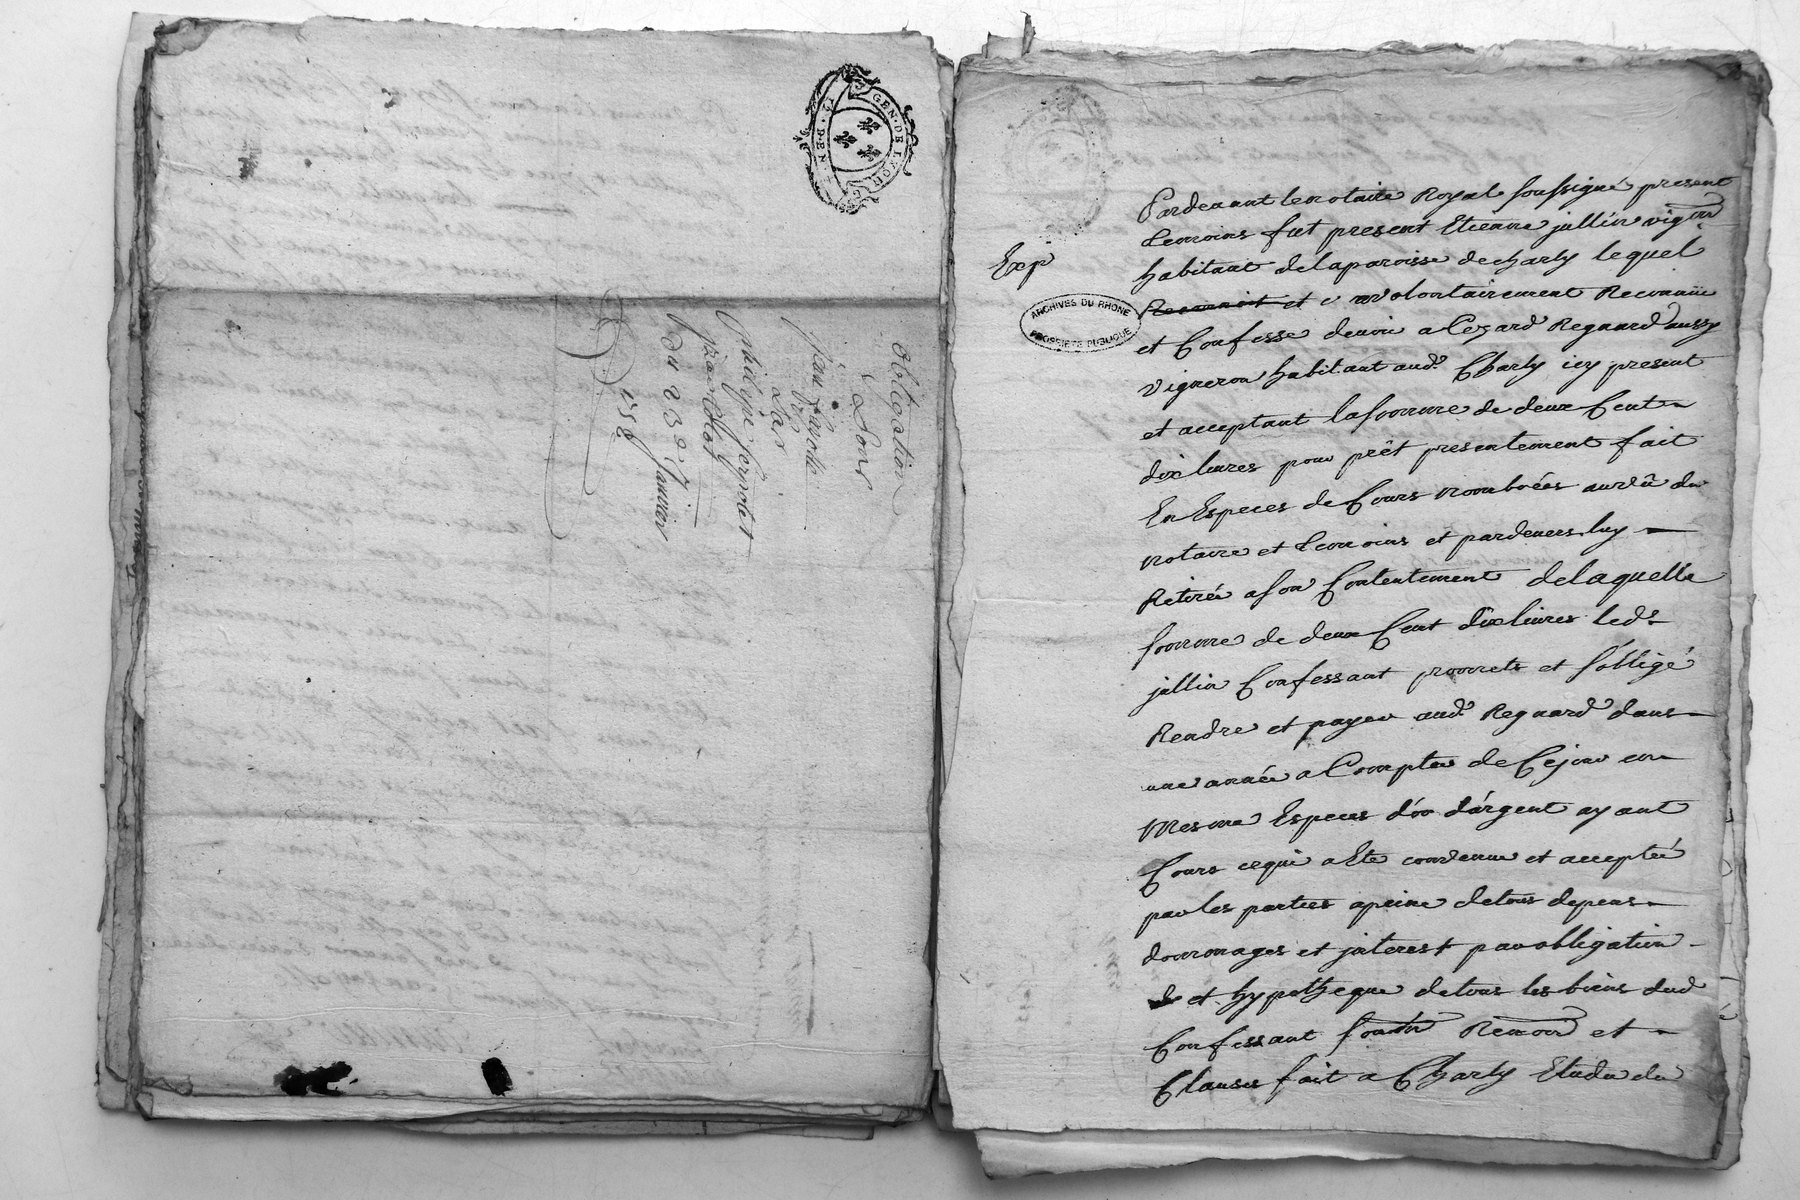 GEN · DE LYON
Obligation
Pour
par
Philipe
du 23e Janvier
Exp
ARCHIVES DU RHONE
PROPRIETE PUBLIQUE
Pardevant le notaire Royal soussigné present
temoins fut present Etienne jullin vigon
habitant de la paroisse de charly lequel
Reconnoit et volontairement Reconnüe
et Confesse devoir a Cezard Regnard aussy
vigneron habitant aud. Charly icy present
et acceptant la somme de deux Cent
dix livres pour prêt presentement fait
En Especes de Cours nombrées au vû du
notaire et temoins et pardevers luy
Retirée a son Contentement de laquelle
somme de deux Cent dix livres led.
jullin Confessant promets et s'obligé
Rendre et payer aud. Regnard dans
une année a Compter de Ce jour en
mesme Especes d'or d'argent ayant
Cours ce qui a Eté convenue et acceptée
par les parties a peine de tous depens
dommages et interest par obligation
et hypotheque de tous les biens dud
Confessant soum Renon et
Clauses fait a Charly Etude du